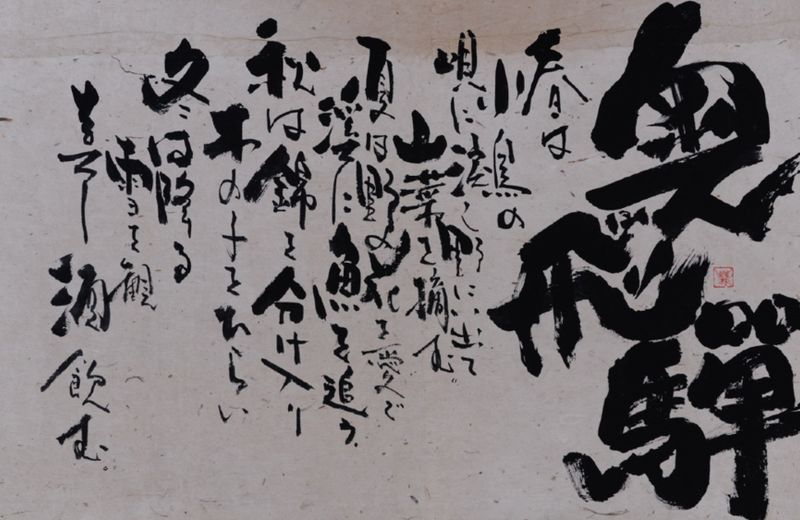 奥飛騨
春は
小鳥の
唄に流れる里に出て
山菜を摘む。
夏は野の花を愛で
渓に魚を追う。
秋は錦を分け入り
木の子をわらい
冬は降る
雪を観
酒飲む。